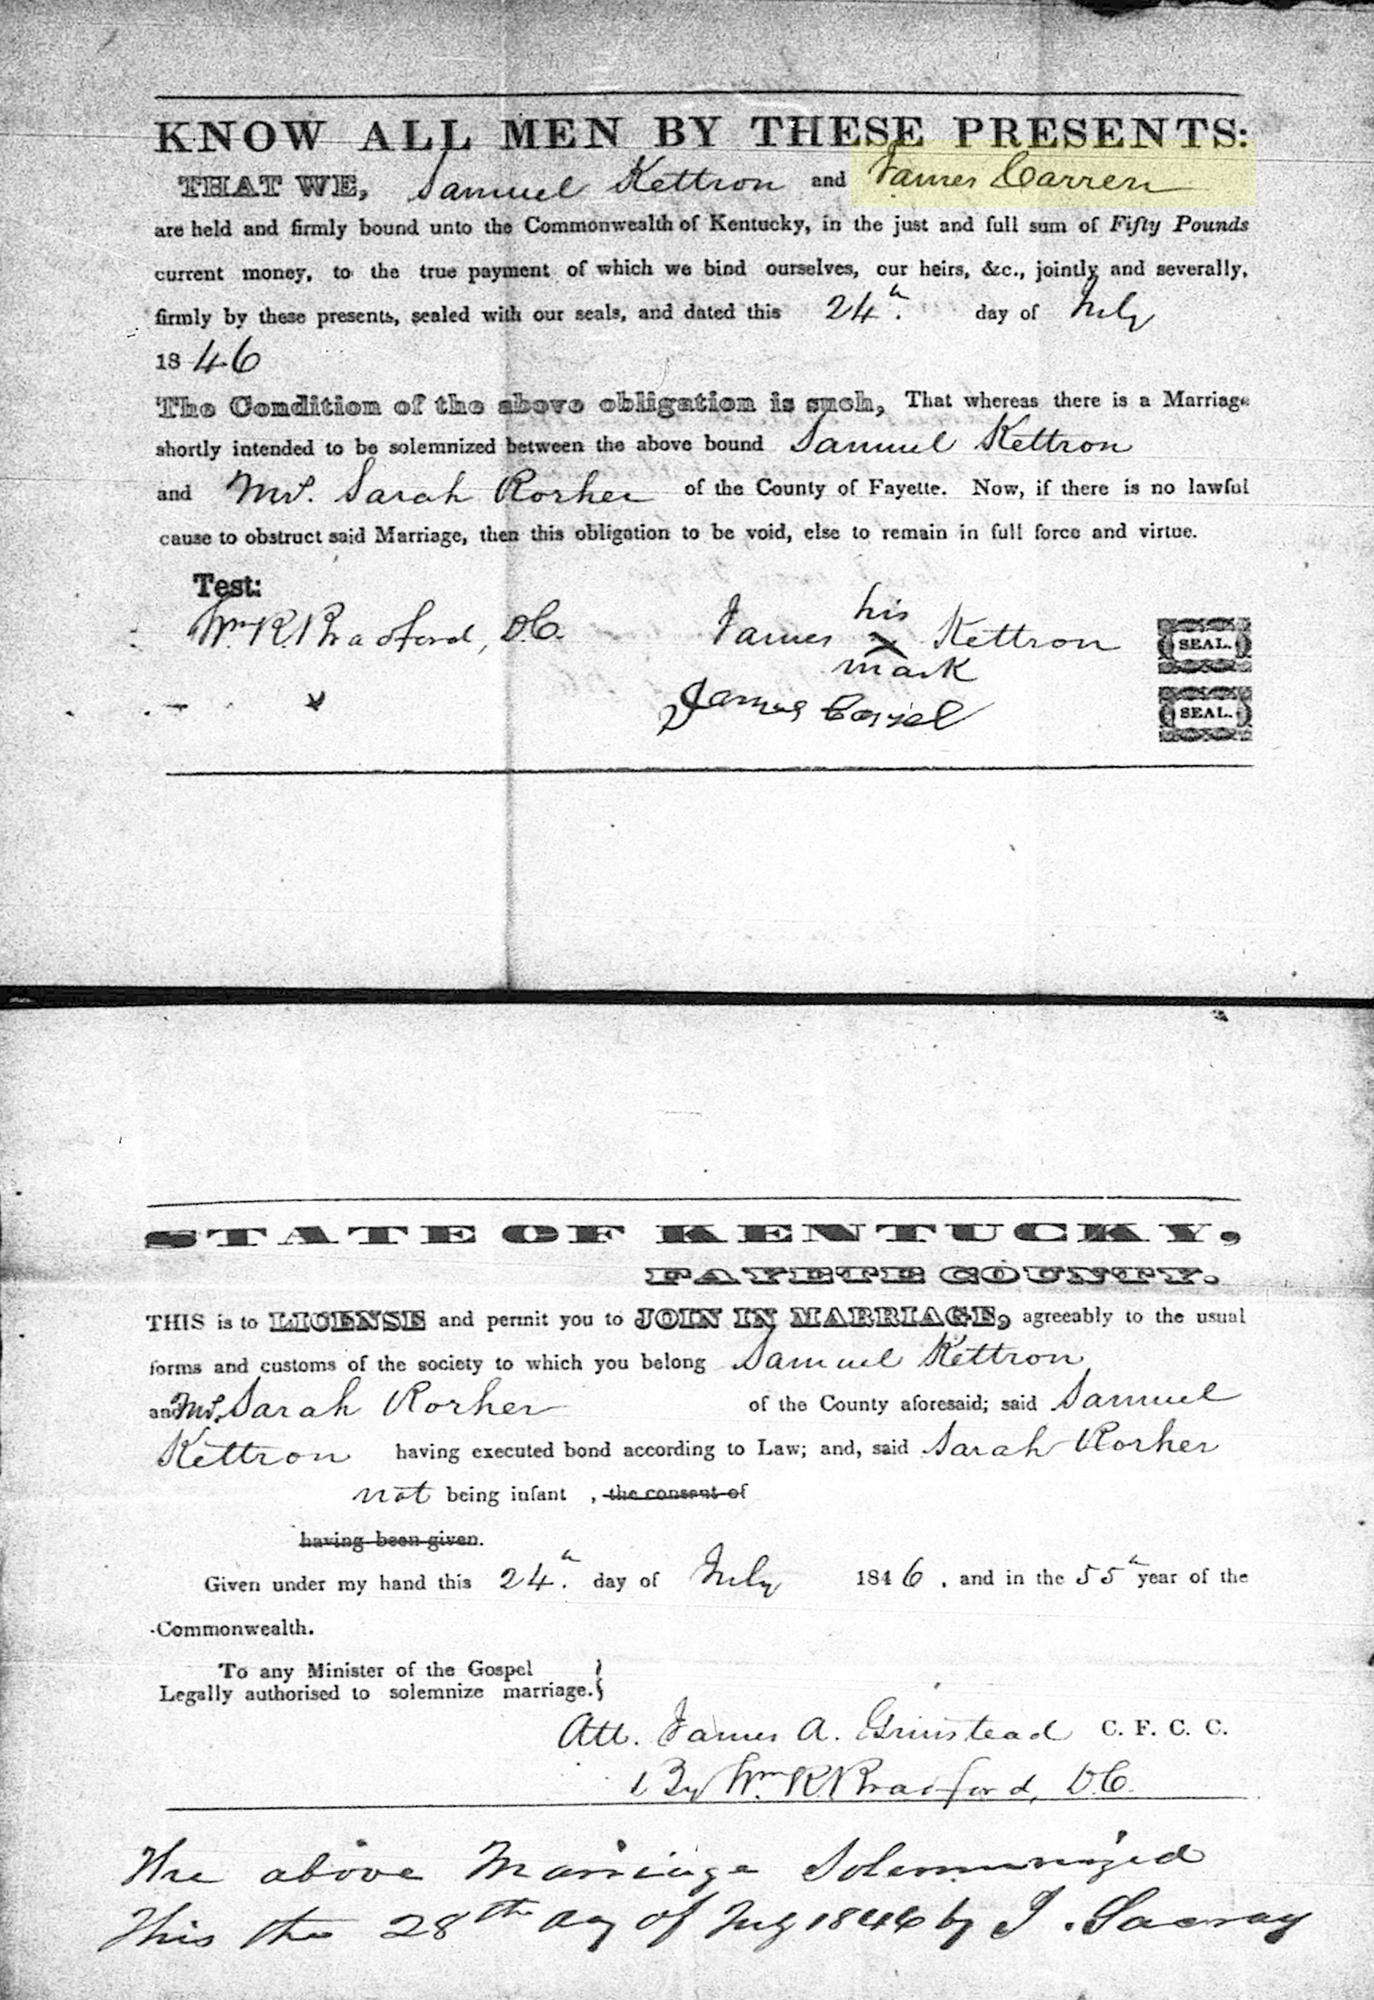 KNOW ALL MEN BY THESE PRESENTS:
THAT WE, Samuel Kettron and James Carren
are held and firmly bound unto the Commonwealth of Kentucky, in the just and full sum of Fifty Pounds
current money, to the true payment of which we bind ourselves, our heirs, &c., jointly and severally,
firmly by these presents, sealed with our seals, and dated this 24h. day of July
1846
The Condition of the above obligation is such, That whereas there is a Marriage
shortly intended to be solemnized between the above bound Samuel Kettron
and Mrs. Sarah Rorher of the County of Fayette. Now, if there is no lawful
cause to obstruct said Marriage, then this obligation to be void, else to remain in full force and virtue.
Test:
his
Wm. R. Bradford, DC. James x Kettron SEAL.
mark
James SEAL.
STATE OF KENTUCKY,
FAYETTE COUNTY.
THIS is to LICENSE and permit you to JOIN IN MARRIAGE, agreeably to the usual
forms and customs of the society to which you belong Samuel Kettron
and Mrs. Sarah Rorher of the County aforesaid; said Samuel
Kettron having executed bond according to Law; and, said Sarah Rorher
not being infant , the consent of
having been given.
Given under my hand this 24h. day of July 1846 , and in the 55h year of the
Commonwealth.
To any Minister of the Gospel
Legally authorised to solemnize marriage. }
Att. James A. Grinstead C. F. C. C.
By Wm. R. Bradford, DC.
The above Marriage Solemnized
This the 28th day of July 1846 by J.